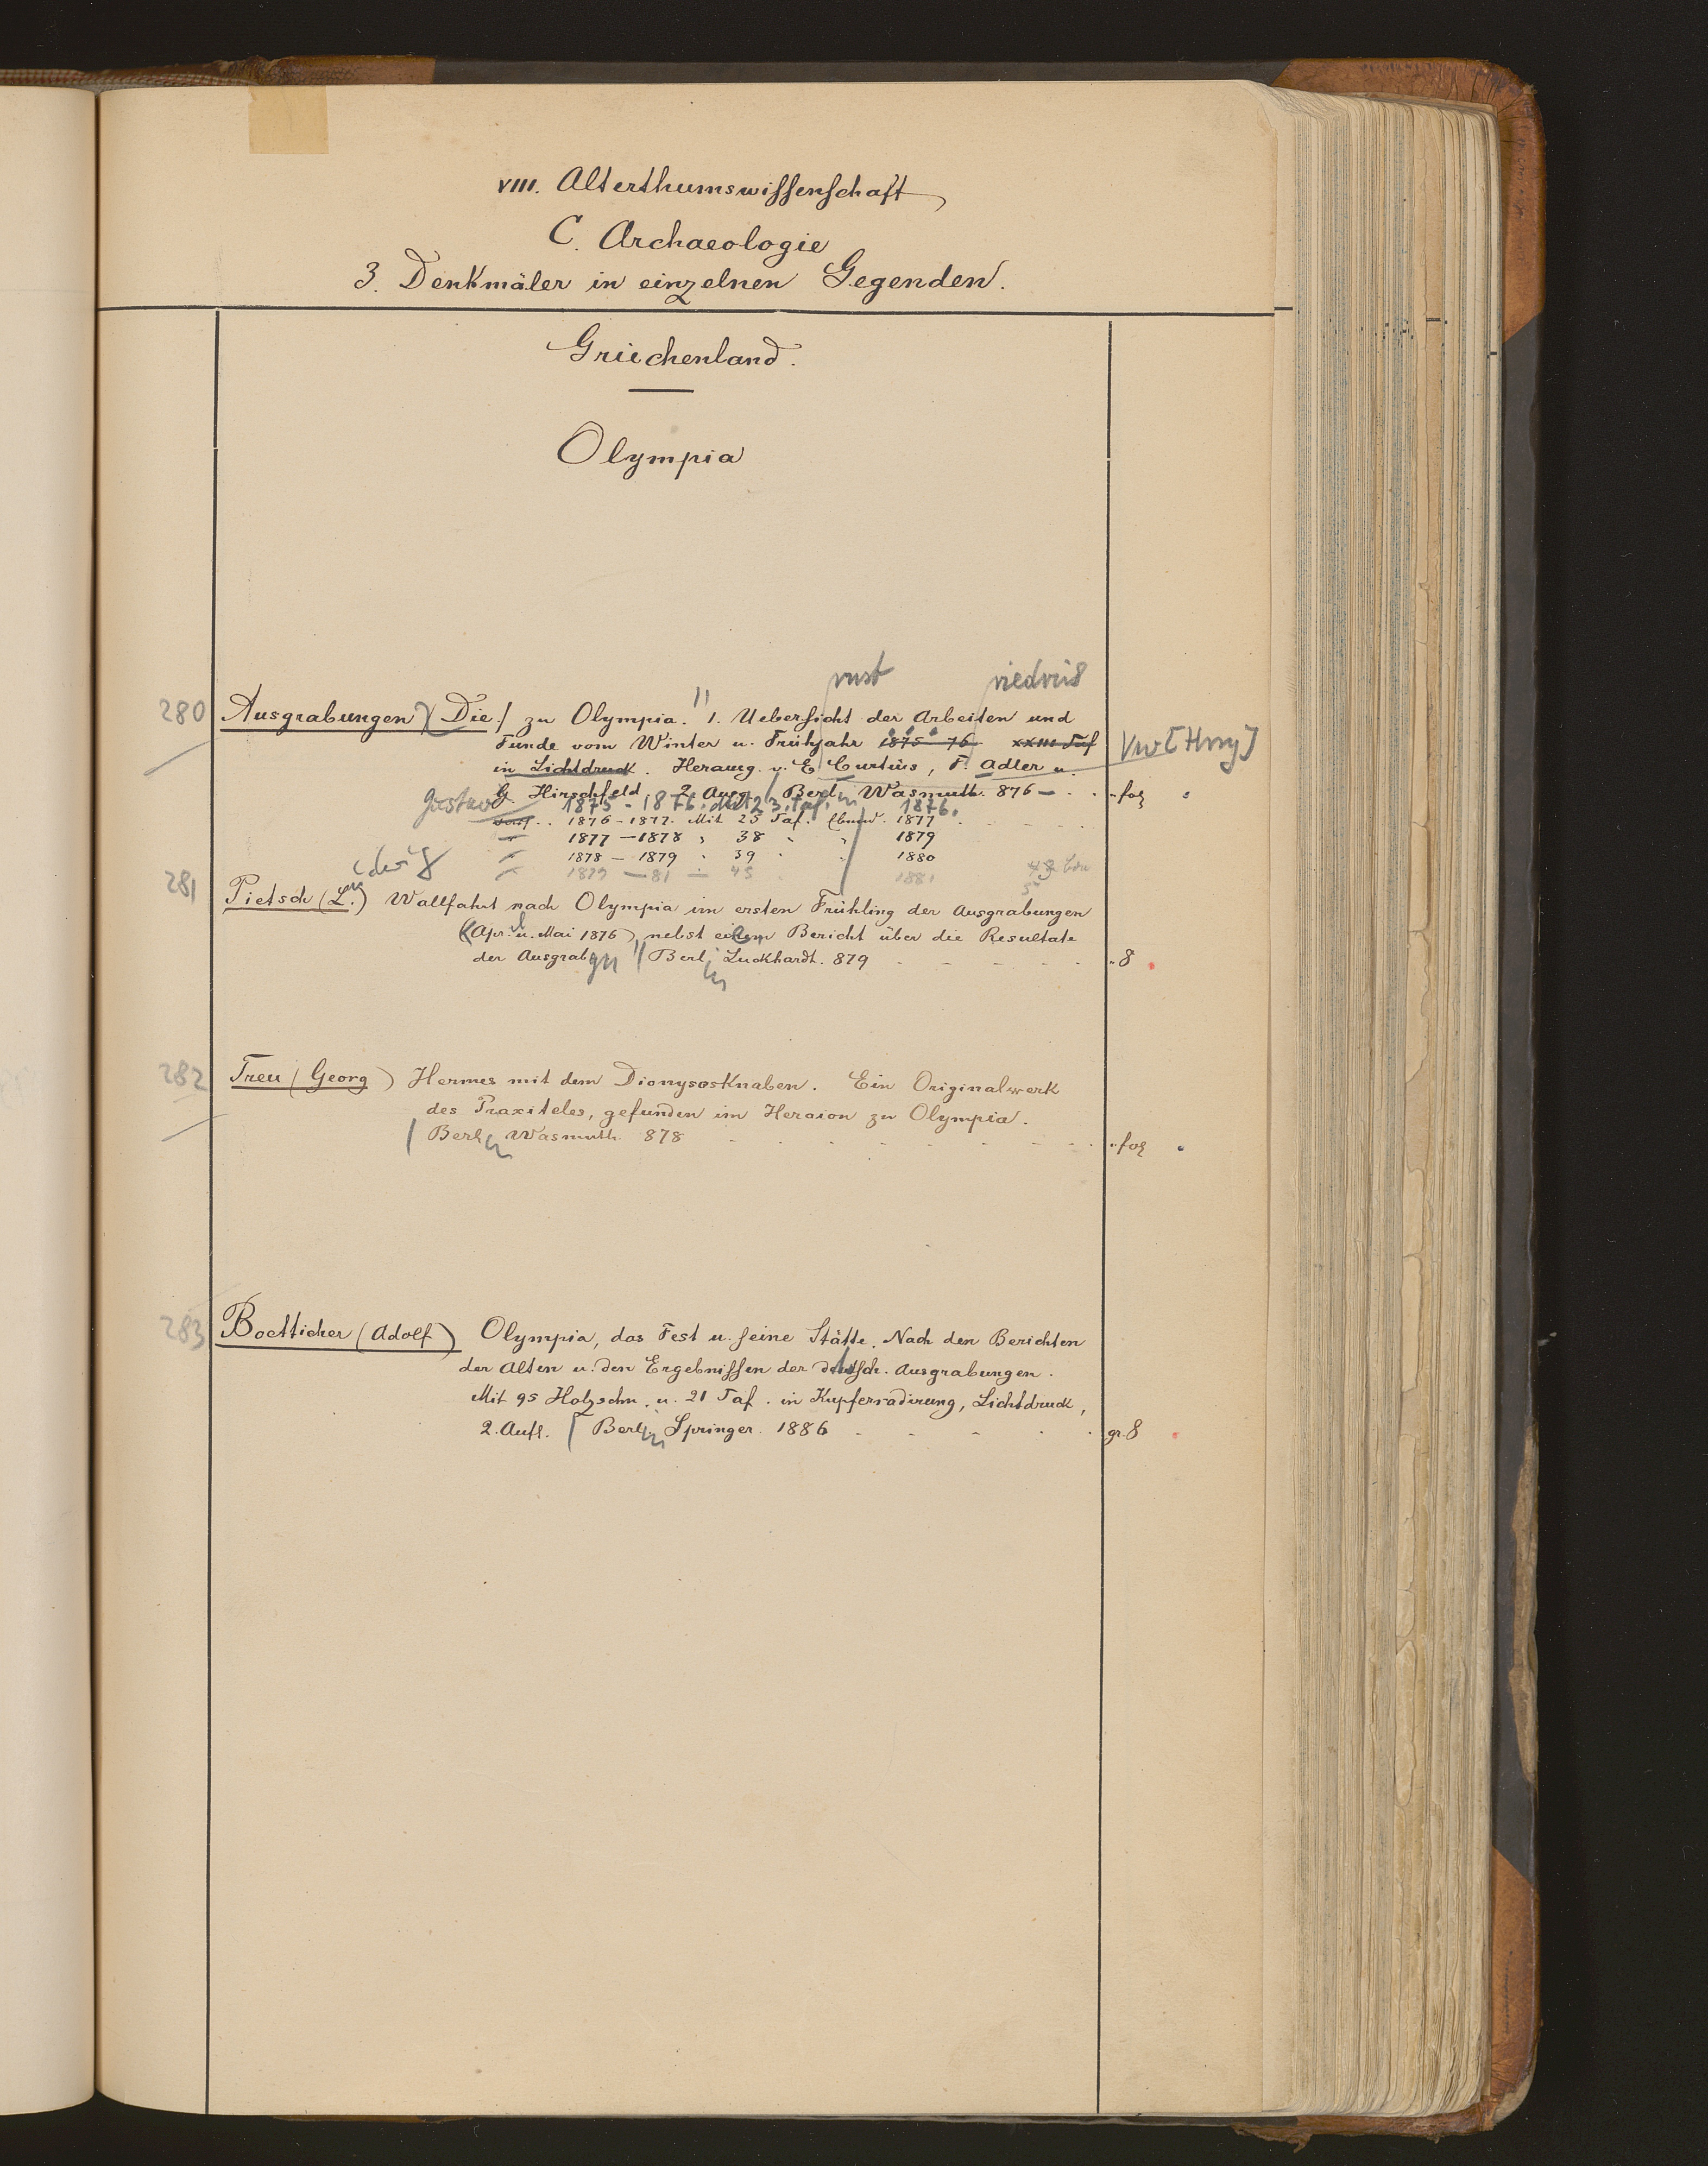 VIII. Alterthumswissenschaft
C. Archaeologie
3. Denkmäler in einzelnen Gegenden.
Griechenland.
Olympia
rnst riedrich
280 Ausgrabungen, Die / zu Olympia. 1. Uebersicht der Arbeiten und
Funde vom Winter u. Frühjahr 1875-76 XXIII Taf
in Lichtdruck. Herausg. v. E. Curtius, F. Adler u.
G. Hirschfeld. 2. Ausg. / Berlin Wasmuth. 876 — fol
Gustav 1875-1876. Mit 23. Taf. 1876.
1876-1877. Mit 25 Taf. Ebend. 1877
1877-1878 " 38 " " 1879
1878-1879 " 39 " " 1880
1879-81 — 45 1881
281 Pietsch (L.) Wallfahrt nach Olympia im ersten Frühling der Ausgrabungen
(Apr. u. Mai 1876), nebst einem Bericht über die Resultate
der Ausgrabgn / Berlin Luckhardt. 879 8
282 Treu (Georg) Hermes mit dem Dionysosknaben. Ein Originalwerk
des Praxiteles, gefunden im Heraion zu Olympia.
/ Berlin Wasmuth. 878 fol
283 Boetticher (Adolf) Olympia, das Fest u. seine Stätte. Nach den Berichten
der Alten u. den Ergebnissen der deutsch. Ausgrabungen.
Mit 95 Holzschn. u. 21 Taf. in Kupferradirung, Lichtdruck,
2. Aufl. / Berlin Springer. 1886 gr. 8